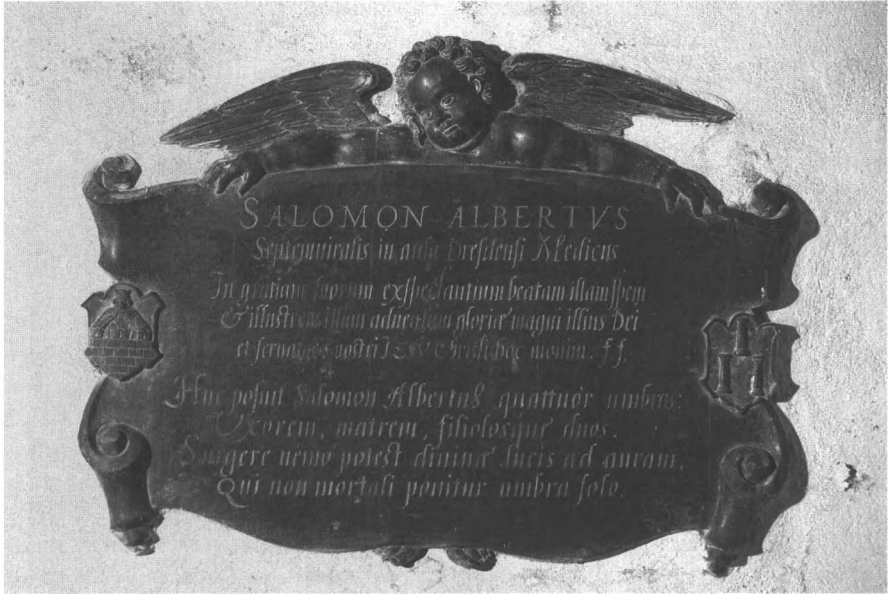 SALOMON ALBERTVS
Septemuiralis in aula Dresdensi Medicus
In gratiam suorum exspectantium beatam illam spem
& illustrem illum aduentum gloriæ magni illius Dei
et seruatoris nostri Christi hoc monim. ff.
Huc posuit Salomon Albertus quattuor umbras:
Vxorem, matrem, filiolosque duos.
Surgere nemo potest diuinæ lucis ad auram,
Qui non mortali ponitur umbra solo.